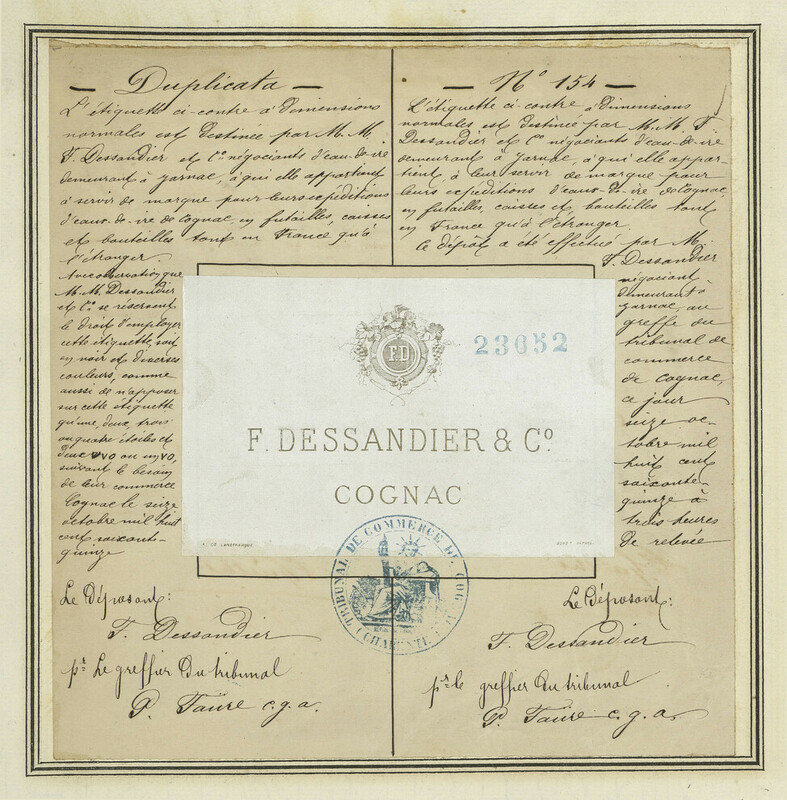 Duplicata
L'étiquette ci-contre à dimensions
normales est destinée par M. M.
F. Dessandier et Cº négociants d'eau-de-vie
demeurant à Jarnac, à qui elle appartient
à servir de marque pour leurs expéditions
d'eaux-de-vie de Cognac, en futailles, caisses
et bouteilles tant en France qu'à
l'étranger.
Avec observation que
M. M. Dessandier
et Cº se réservent
le droit d'employer
cette étiquette, soit
en noir et diverses
couleurs, comme
aussi de n'apposer
sur cette étiquette
qu'une, deux, trois
ou quatre étoiles et
deux vo ou un vo,
suivant le besoin
de leur commerce
Cognac le seize
octobre mil huit
cent soixante-
quinze
Le Déposant:
F. Dessandier
pr. Le greffier du tribunal
P. Faure c.g.a.
Nº 154
L'étiquette ci-contre à dimensions
normales, est destinée par M. M. F.
Dessandier et Cº négociants d'eau-de-vie
demeurant à Jarnac, à qui elle appar-
tient, à leur servir de marque pour
leurs expéditions d'eaux-de-vie de Cognac,
en futailles, caisses et bouteilles tant
en France qu'à l'étranger.
Ce dépôt a été effectué par M.
F. Dessandier
négociant
demeurant à
Jarnac, au
greffe du
tribunal de
commerce
de Cognac,
ce jour
seize oc-
tobre mil
huit cent
soixante-
quinze à
trois heures
de relevée
Le Déposant:
F. Dessandier
pr. le greffier du tribunal
P. Faure c.g.a.
F D
23052
F. DESSANDIER & Cº
COGNAC
TRIBUNAL DE COMMERCE DE COGNAC
(CHARENTE)